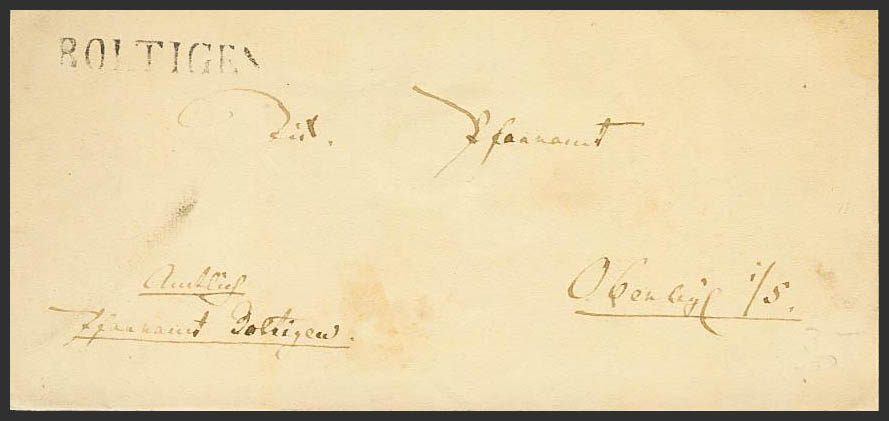 BOLTIGEN
Tit. Pfarramt
Oberwyl i/S.
Amtlich
Pfarramt Boltigen.